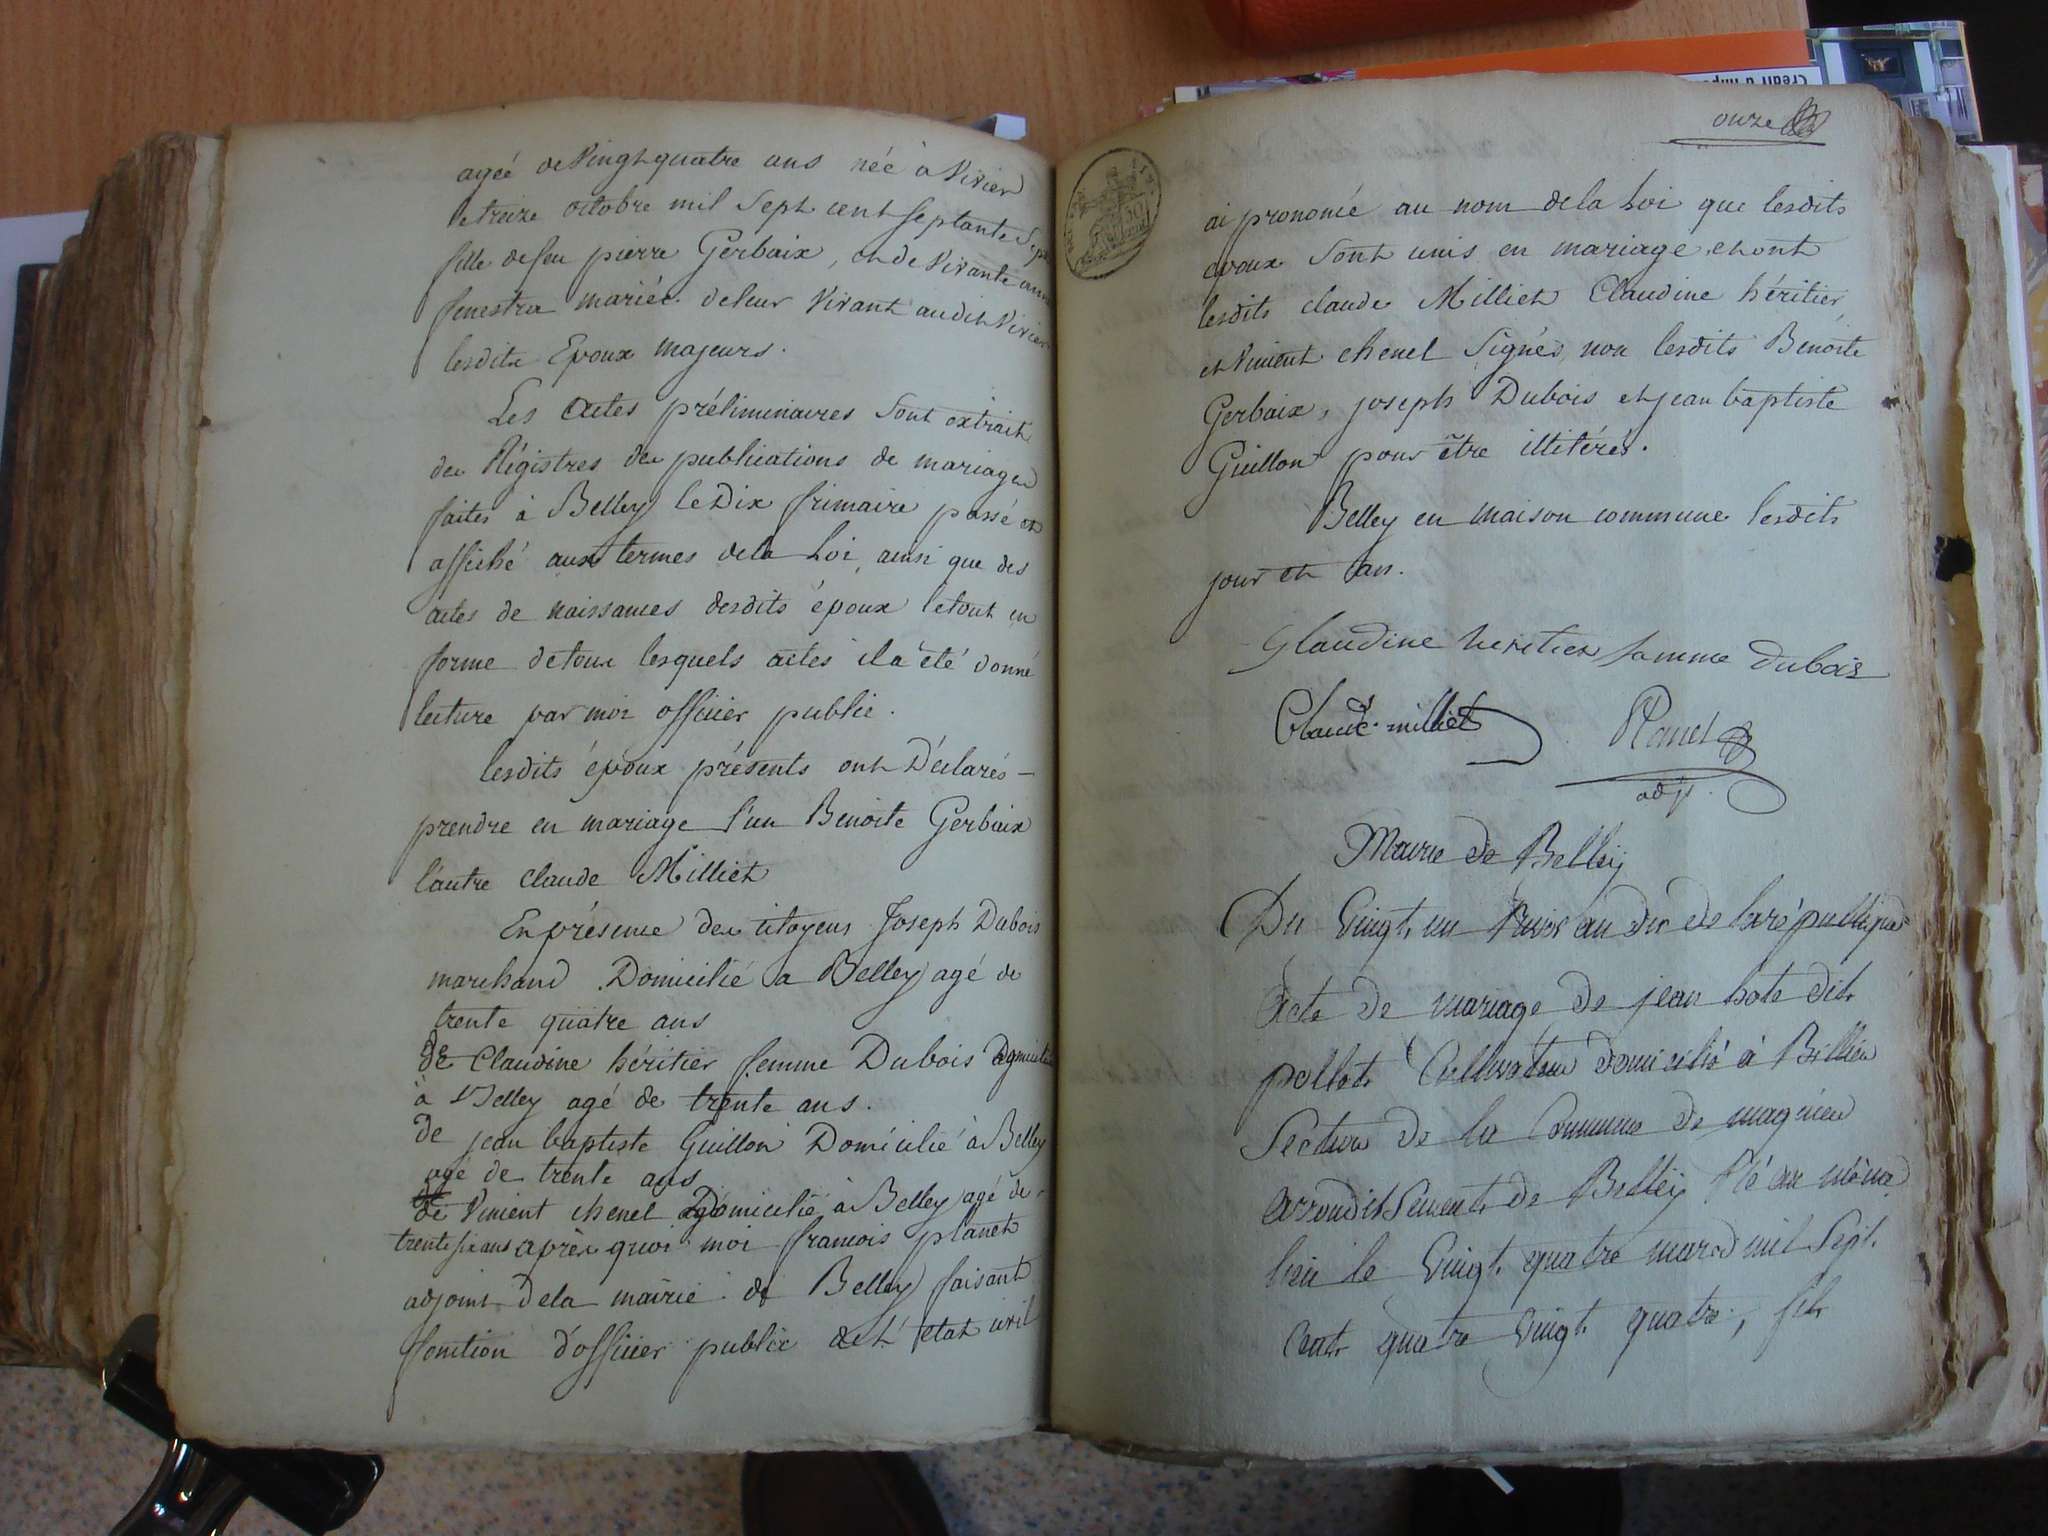 agée de Vingt quatre ans née à Virier
le treize octobre mil Sept cent Septante Sept
fille de feu pierre Gerbaix, et de Vivante anne
fenestra mariée de leur Vivant audit Virier
lesdits Epoux majeurs.
Les actes préliminaires Sont extrait
des Régistres des publications de mariages
faites à Belley le Dix frimaire passé et
affiché aux termes de la Loi, ainsi que des
actes de naissances desdits époux le tout en
forme de tous lesquels actes il a été donné
lecture par moi officier public.
lesdits époux présents ont Déclarés -
prendre en mariage l'un Benoite Gerbaix
l'autre claude Milliet
En présence des citoyens Joseph Dubois
marchand Domicilié a Belley agé de
trente quatre ans
de Claudine héritier femme Dubois Domicilié
à Belley agé de trente ans.
de jean baptiste Guillon Domicilié à Belley
agé de trente ans
de Vincent chenel Domicilié à Belley agé de
trente six ans après quoi moi francois planet
adjoint de la mairie de Belley faisant
fonction d'officier public de l'état civil
onze
ai prononcé au nom de la Loi que lesdits
époux Sont unis en mariage et ont
lesdits claude Milliet Claudine héritier
et Vincent chenel Signés, non lesdits Benoite
Gerbaix, joseph Dubois et jean baptiste
Guillon pour être illitérés.
Belley en maison commune lesdits
jour et an.
Glaudine heritier famme dubois
Claude milliet
Planet
adjt.
Mairie de Belley
Du Vingt un Nivos an dix de la république
Acte de mariage de jean hote dit
pollot Cultivateur domicilié à Billieu
Section de la Commune de magnieu
arrondissement de Belley Né au même
lieu le Vingt quatre mars mil Sept
Cent quatre Vingt quatre, fils